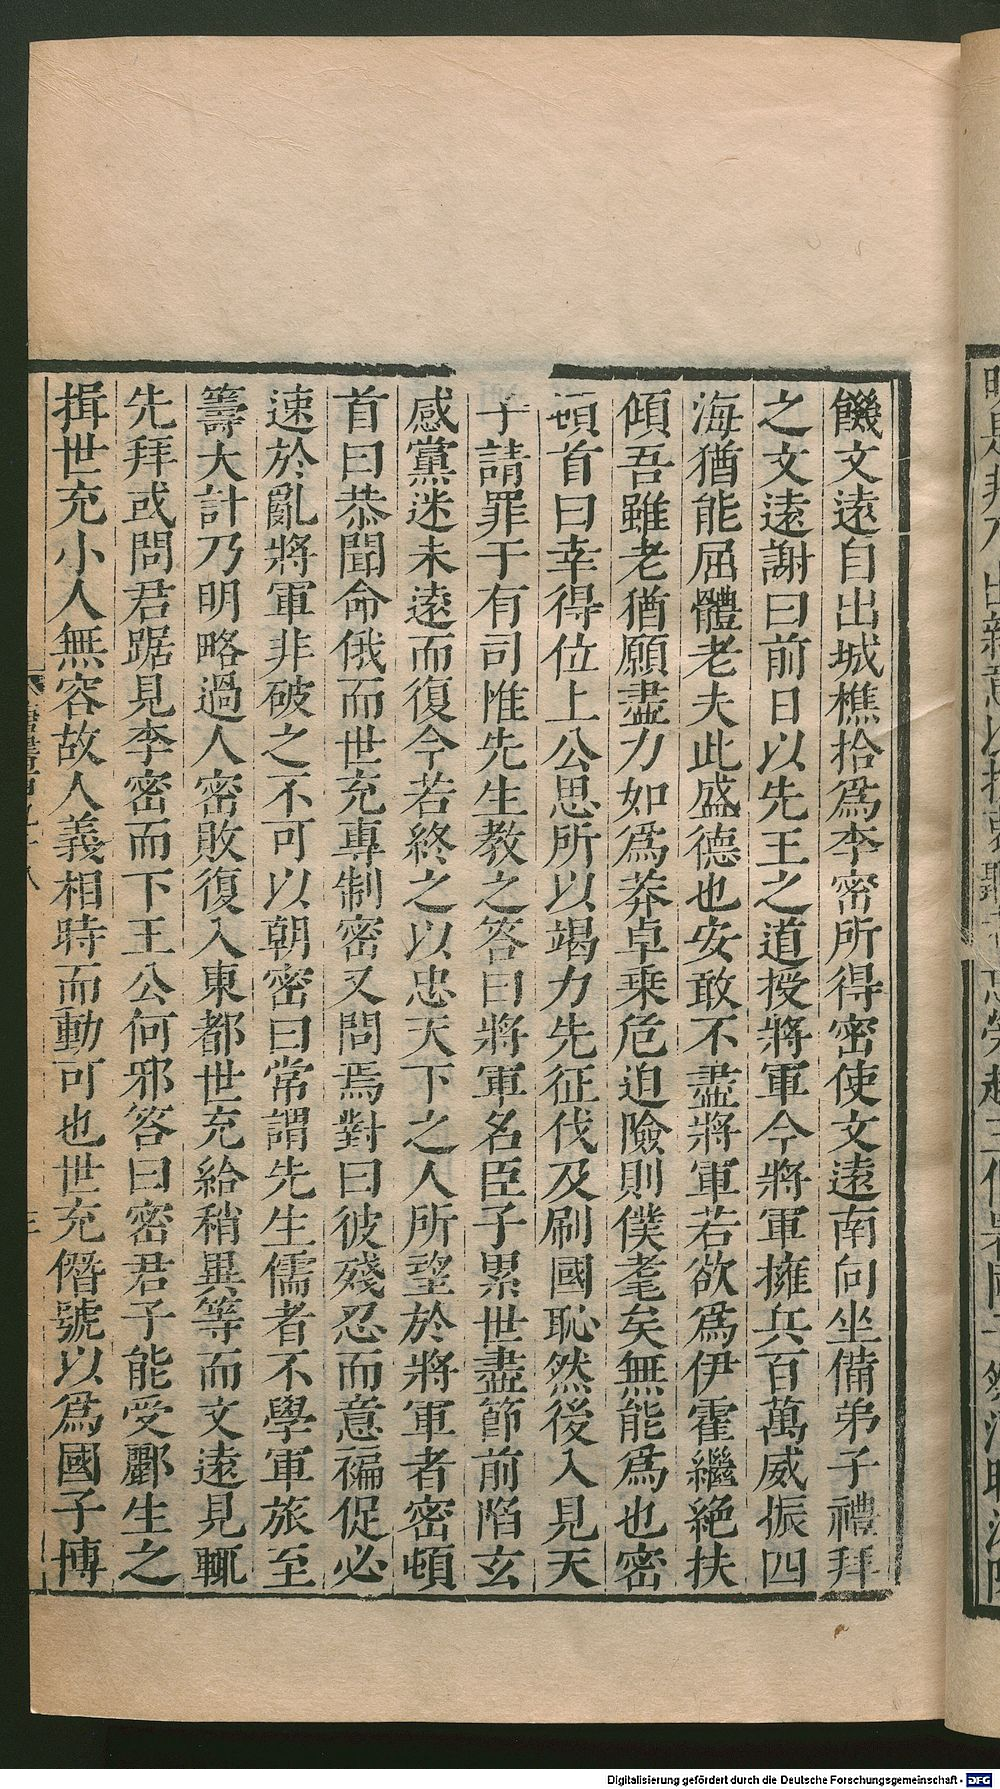 饑文遠自出城樵拾爲李密所得密使文遠南向坐備弟子禮拜
之文遠謝曰前日以先王之道授將軍今將軍擁兵百萬威振四
海猶能屈體老夫此盛德也安敢不盡將軍若欲爲伊霍繼絶扶
傾吾雖老猶願盡力如爲莽卓乗危迫險則僕耄矣無能爲也密
頓首曰幸得位上公思所以竭力先征伐及刷國恥然後入見天
子請罪于有司惟先生教之答曰將軍名臣子累世盡節前陷玄
感黨迷未遠而復今若終之以忠天下之人所望於將軍者密頓
首曰恭聞命俄而世充專制密又問焉對曰彼殘忍而意褊促必
速於亂將軍非破之不可以朝密曰常謂先生儒者不學軍旅至
籌大計乃明略過人密敗復入東都世充給稍異等而文遠見輒
先拜或問君踞見李密而下王公何邪答曰密君子能受酈生之
揖世充小人無容故人義相時而動可也世充僭號以爲國子博
Digitalisierung gefördert durch die Deutsche Forschungsgemeinschaft - DFG